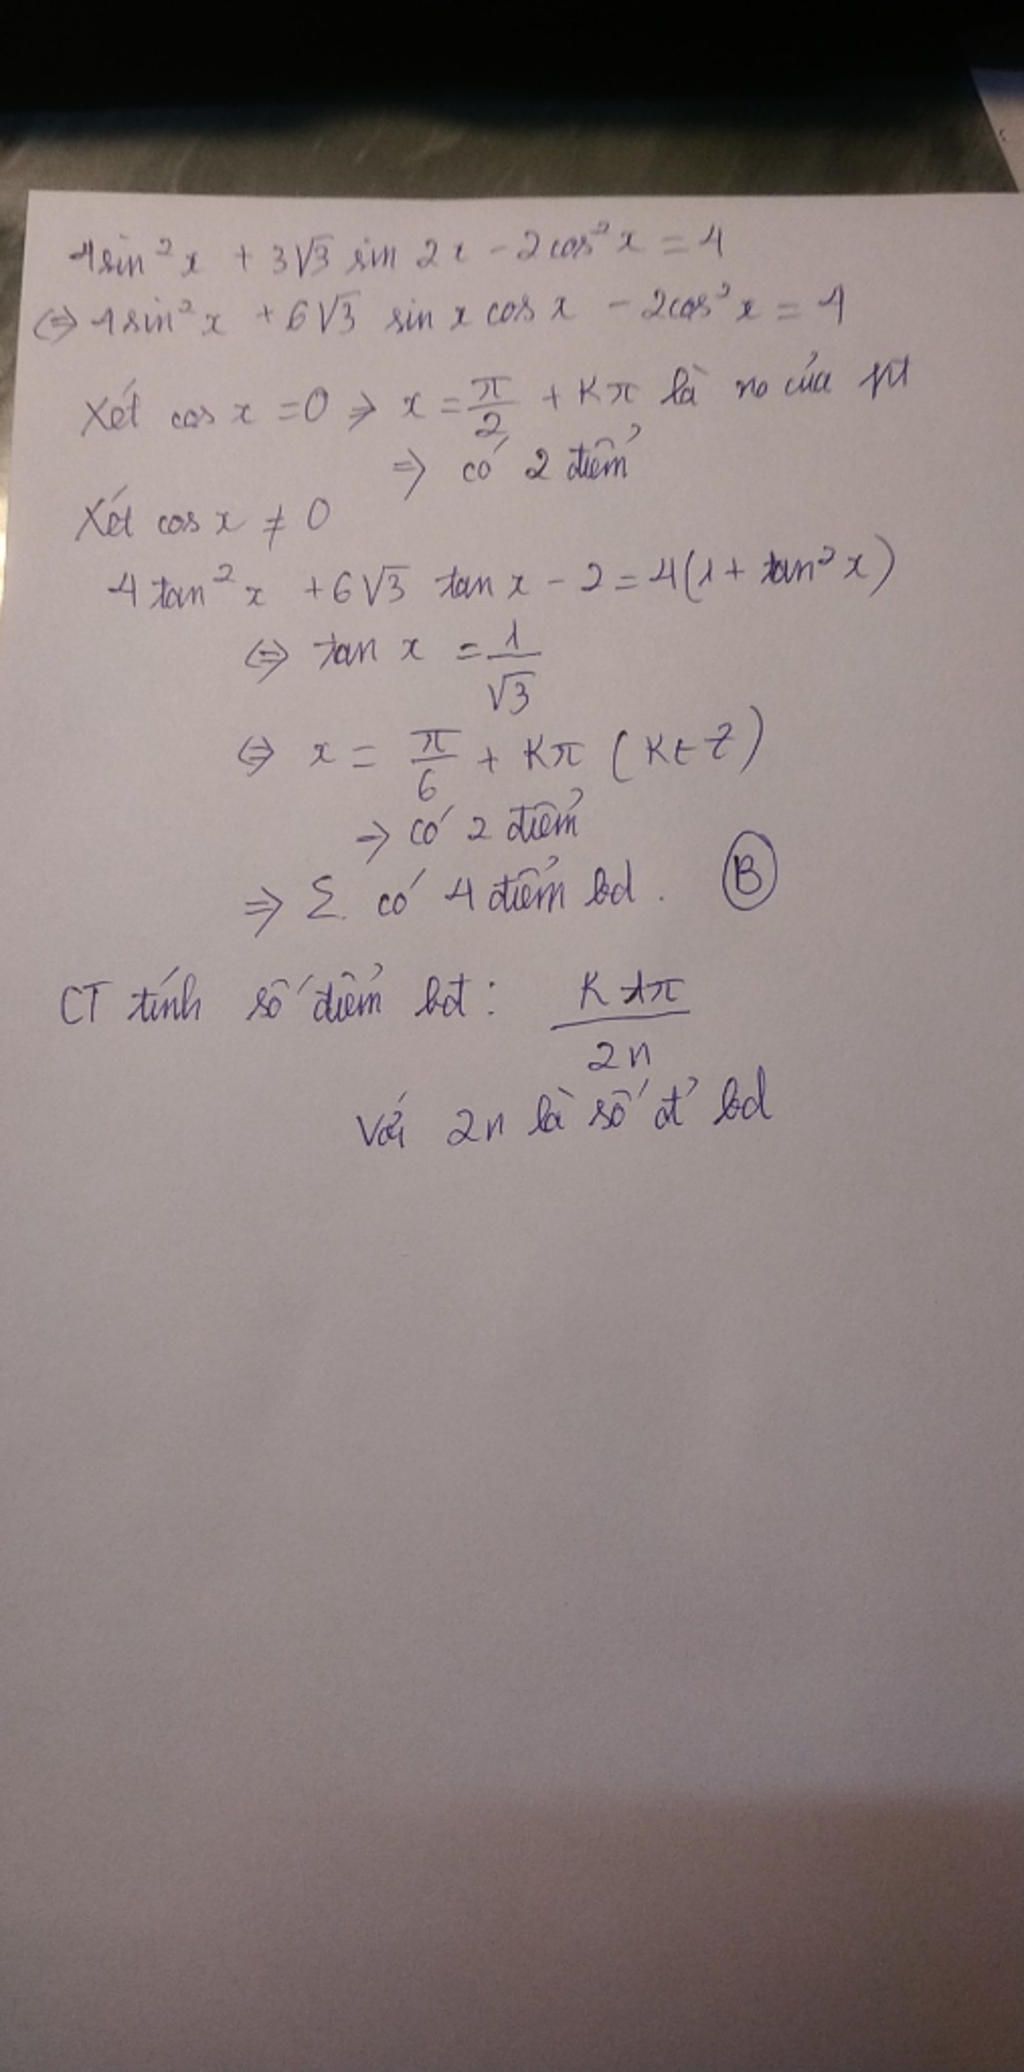 4sin²x + 3√3 sin 2x - 2cos²x = 4
⇔ 4sin²x + 6√3 sin x cos x - 2cos²x = 4
Xét cos x = 0 ⇒ x = π/2 + Kπ là no của pt
⇒ có 2 điểm
Xét cos x ≠ 0
4 tan²x + 6√3 tan x - 2 = 4(1 + tan²x)
⇔ tan x = 1/√3
⇔ x = π/6 + Kπ (K ∈ Z)
⇒ có 2 điểm
⇒ Σ có 4 điểm bd. Ⓑ
CT tính số điểm bd: π/2n
với 2n là số đ' bd